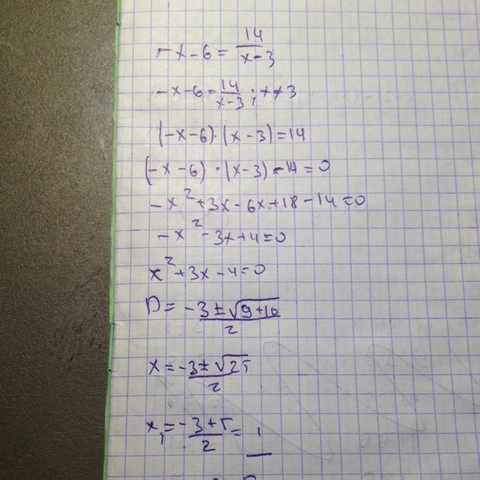 -x-6 = 14/(x-3)
-x-6 = 14/(x-3); x≠3
(-x-6)·(x-3)=14
(-x-6)·(x-3)-14=0
-x²+3x-6x+18-14=0
-x²-3x+4=0
x²+3x-4=0
D= (-3±√(9+16))/2
x= (-3±√25)/2
x₁= (-3+5)/2 = 1